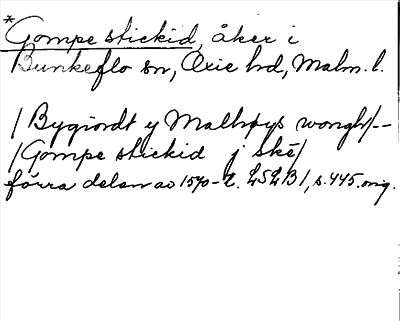 * Gompe stickid, åker i
Bunkeflo sn, Oxie hd, Malm. l.
/ Bygiordt y Malhøys wongh/--
/ Gompe stickid j skē/
förra delen av 1570-t. LSLB1, s. 445. orig.